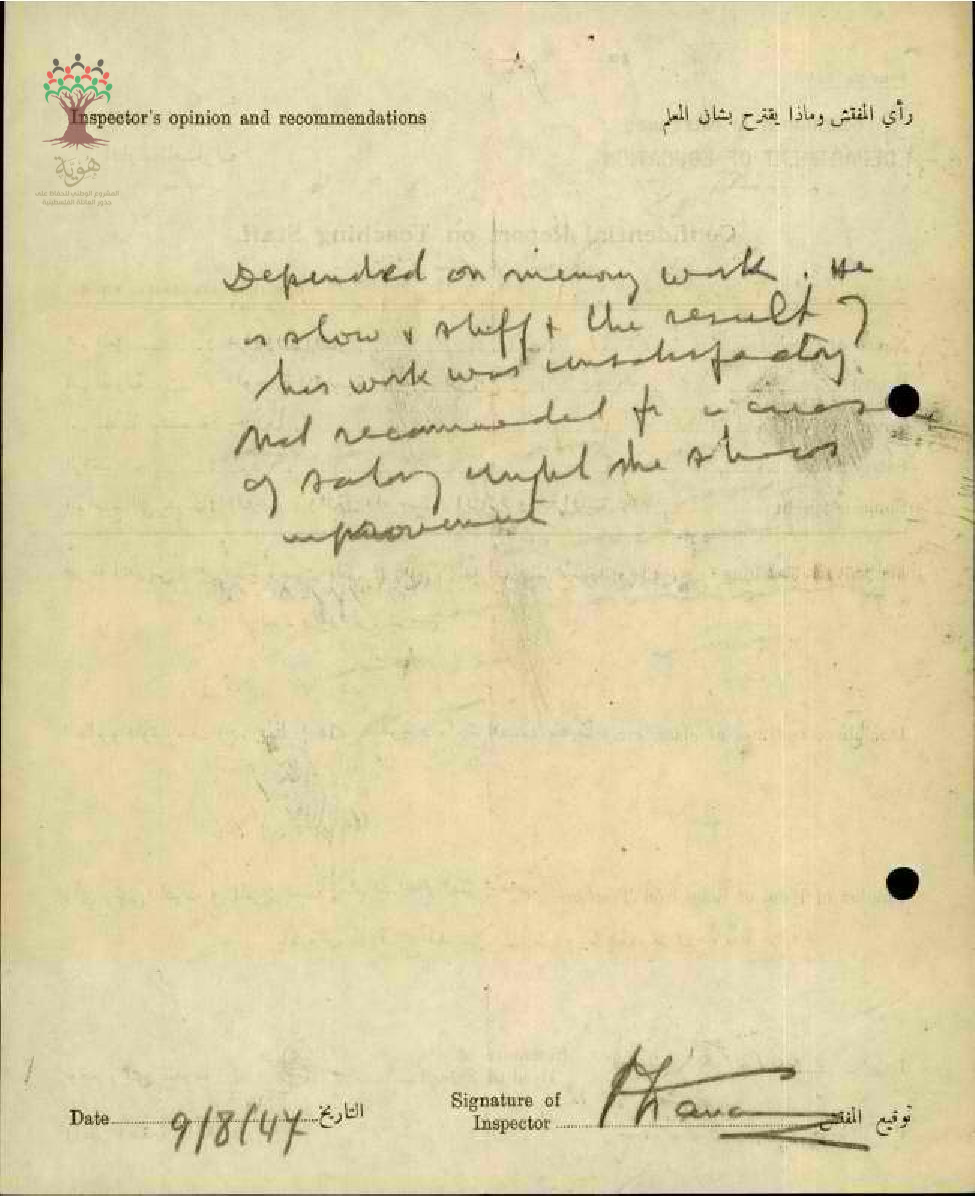 Inspector's opinion and recommendations
رأي المفتش وماذا يقترح بشان المعلم
هُوِيَّة
المشروع الوطني للحفاظ على
جذور العائلة الفلسطينية
Depended on memory work. He
is slow & stiff & the result of
his work was unsatisfactory.
Not recommended for increase
of salary until he shows
improvement
Date 9/8/47 التاريخ
Signature of
Inspector
توقيع المفتش